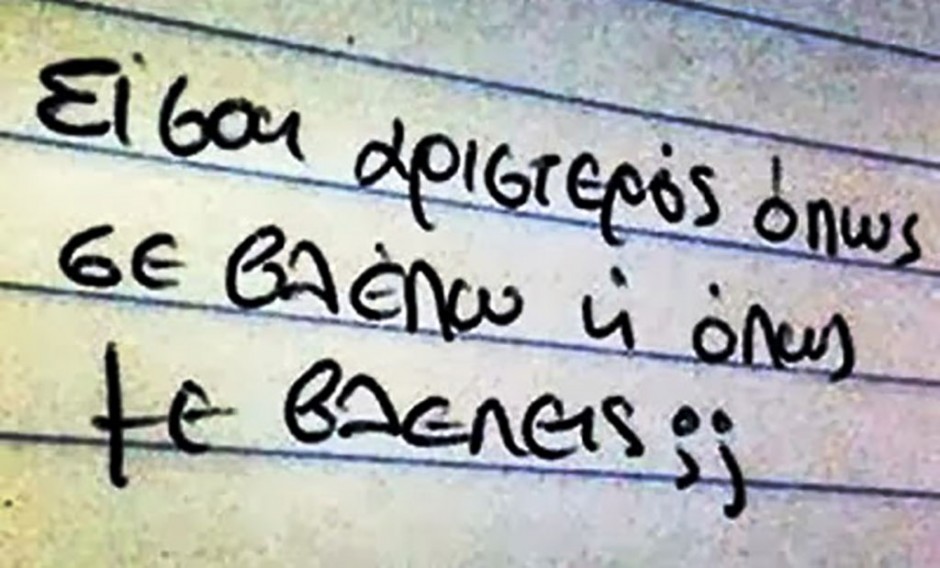 Είσαι αριστερός όπως
σε βλέπω ή όπως
με βλεπεις;;